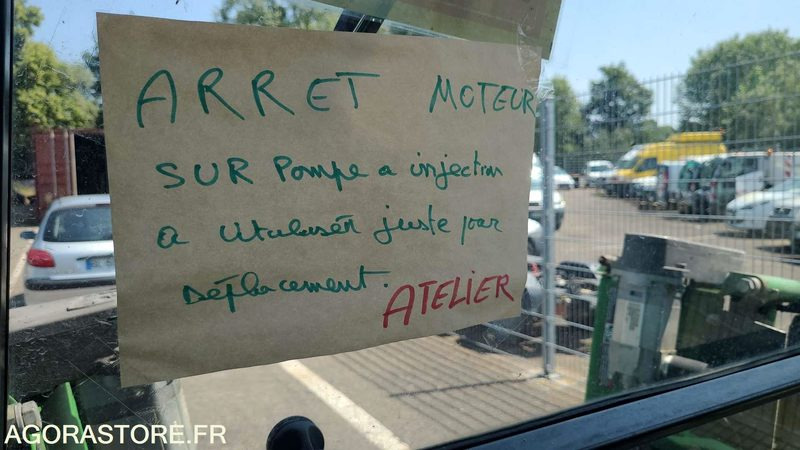 ARRET MOTEUR
SUR Pompe a injection
a utuluser juste pour
Déplacement.
ATELIER
AGORASTORE.FR